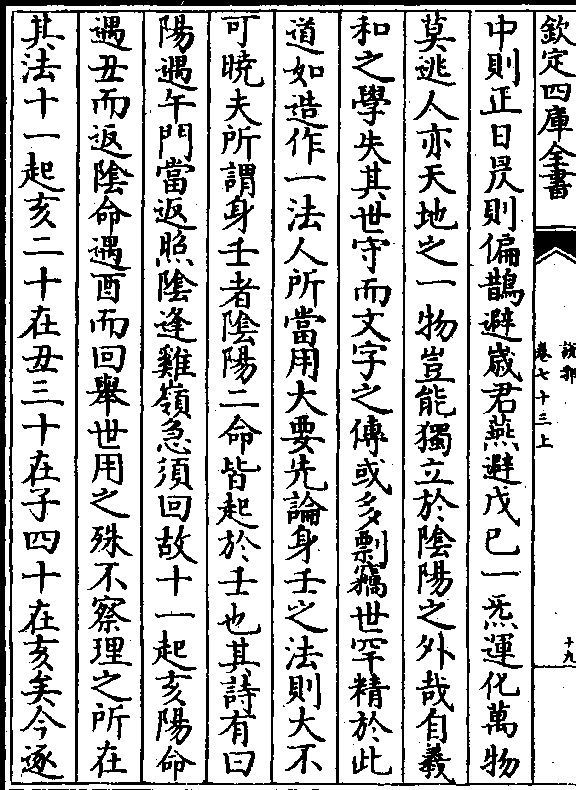 欽定四庫全書
說郛
卷七十三上
十九
中則正日昃則偏鵲避歲君燕避戊巳一炁運化萬物
莫逃人亦天地之一物豈能獨立於陰陽之外哉自羲
和之學失其世守而文字之傳或多剽竊世罕精於此
道如造作一法人所當用大要先論身壬之法則大不
可曉夫所謂身壬者陰陽二命皆起於壬也其詩有曰
陽遇午門當返照陰逢雞嶺急須回故十一起亥陽命
遇丑而返陰命遇酉而回舉世用之殊不察理之所在
其法十一起亥二十在丑三十在子四十在亥矣今逐